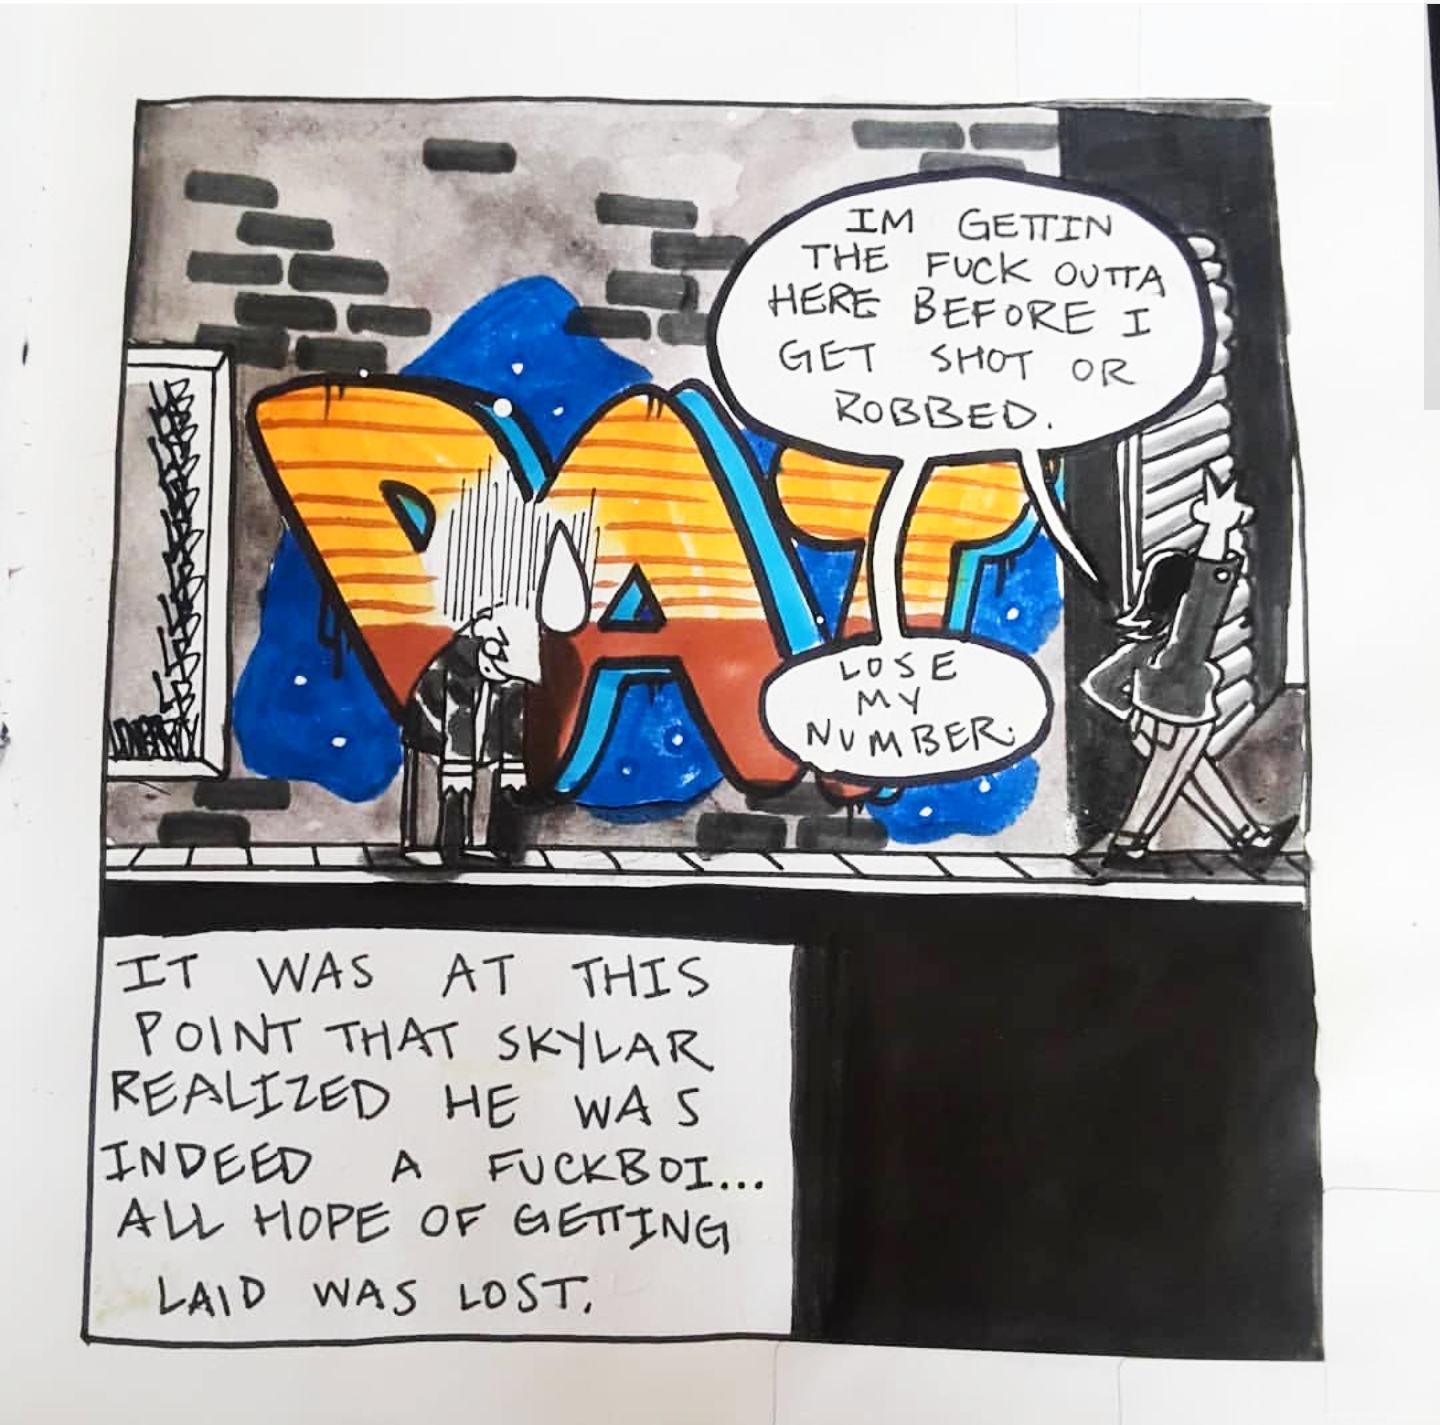 IM GETTIN
THE FUCK OUTTA
HERE BEFORE I
GET SHOT OR
ROBBED.
LOSE
MY
NUMBER.
PAT
IT WAS AT THIS
POINT THAT SKYLAR
REALIZED HE WAS
INDEED A FUCKBOI...
ALL HOPE OF GETTING
LAID WAS LOST.